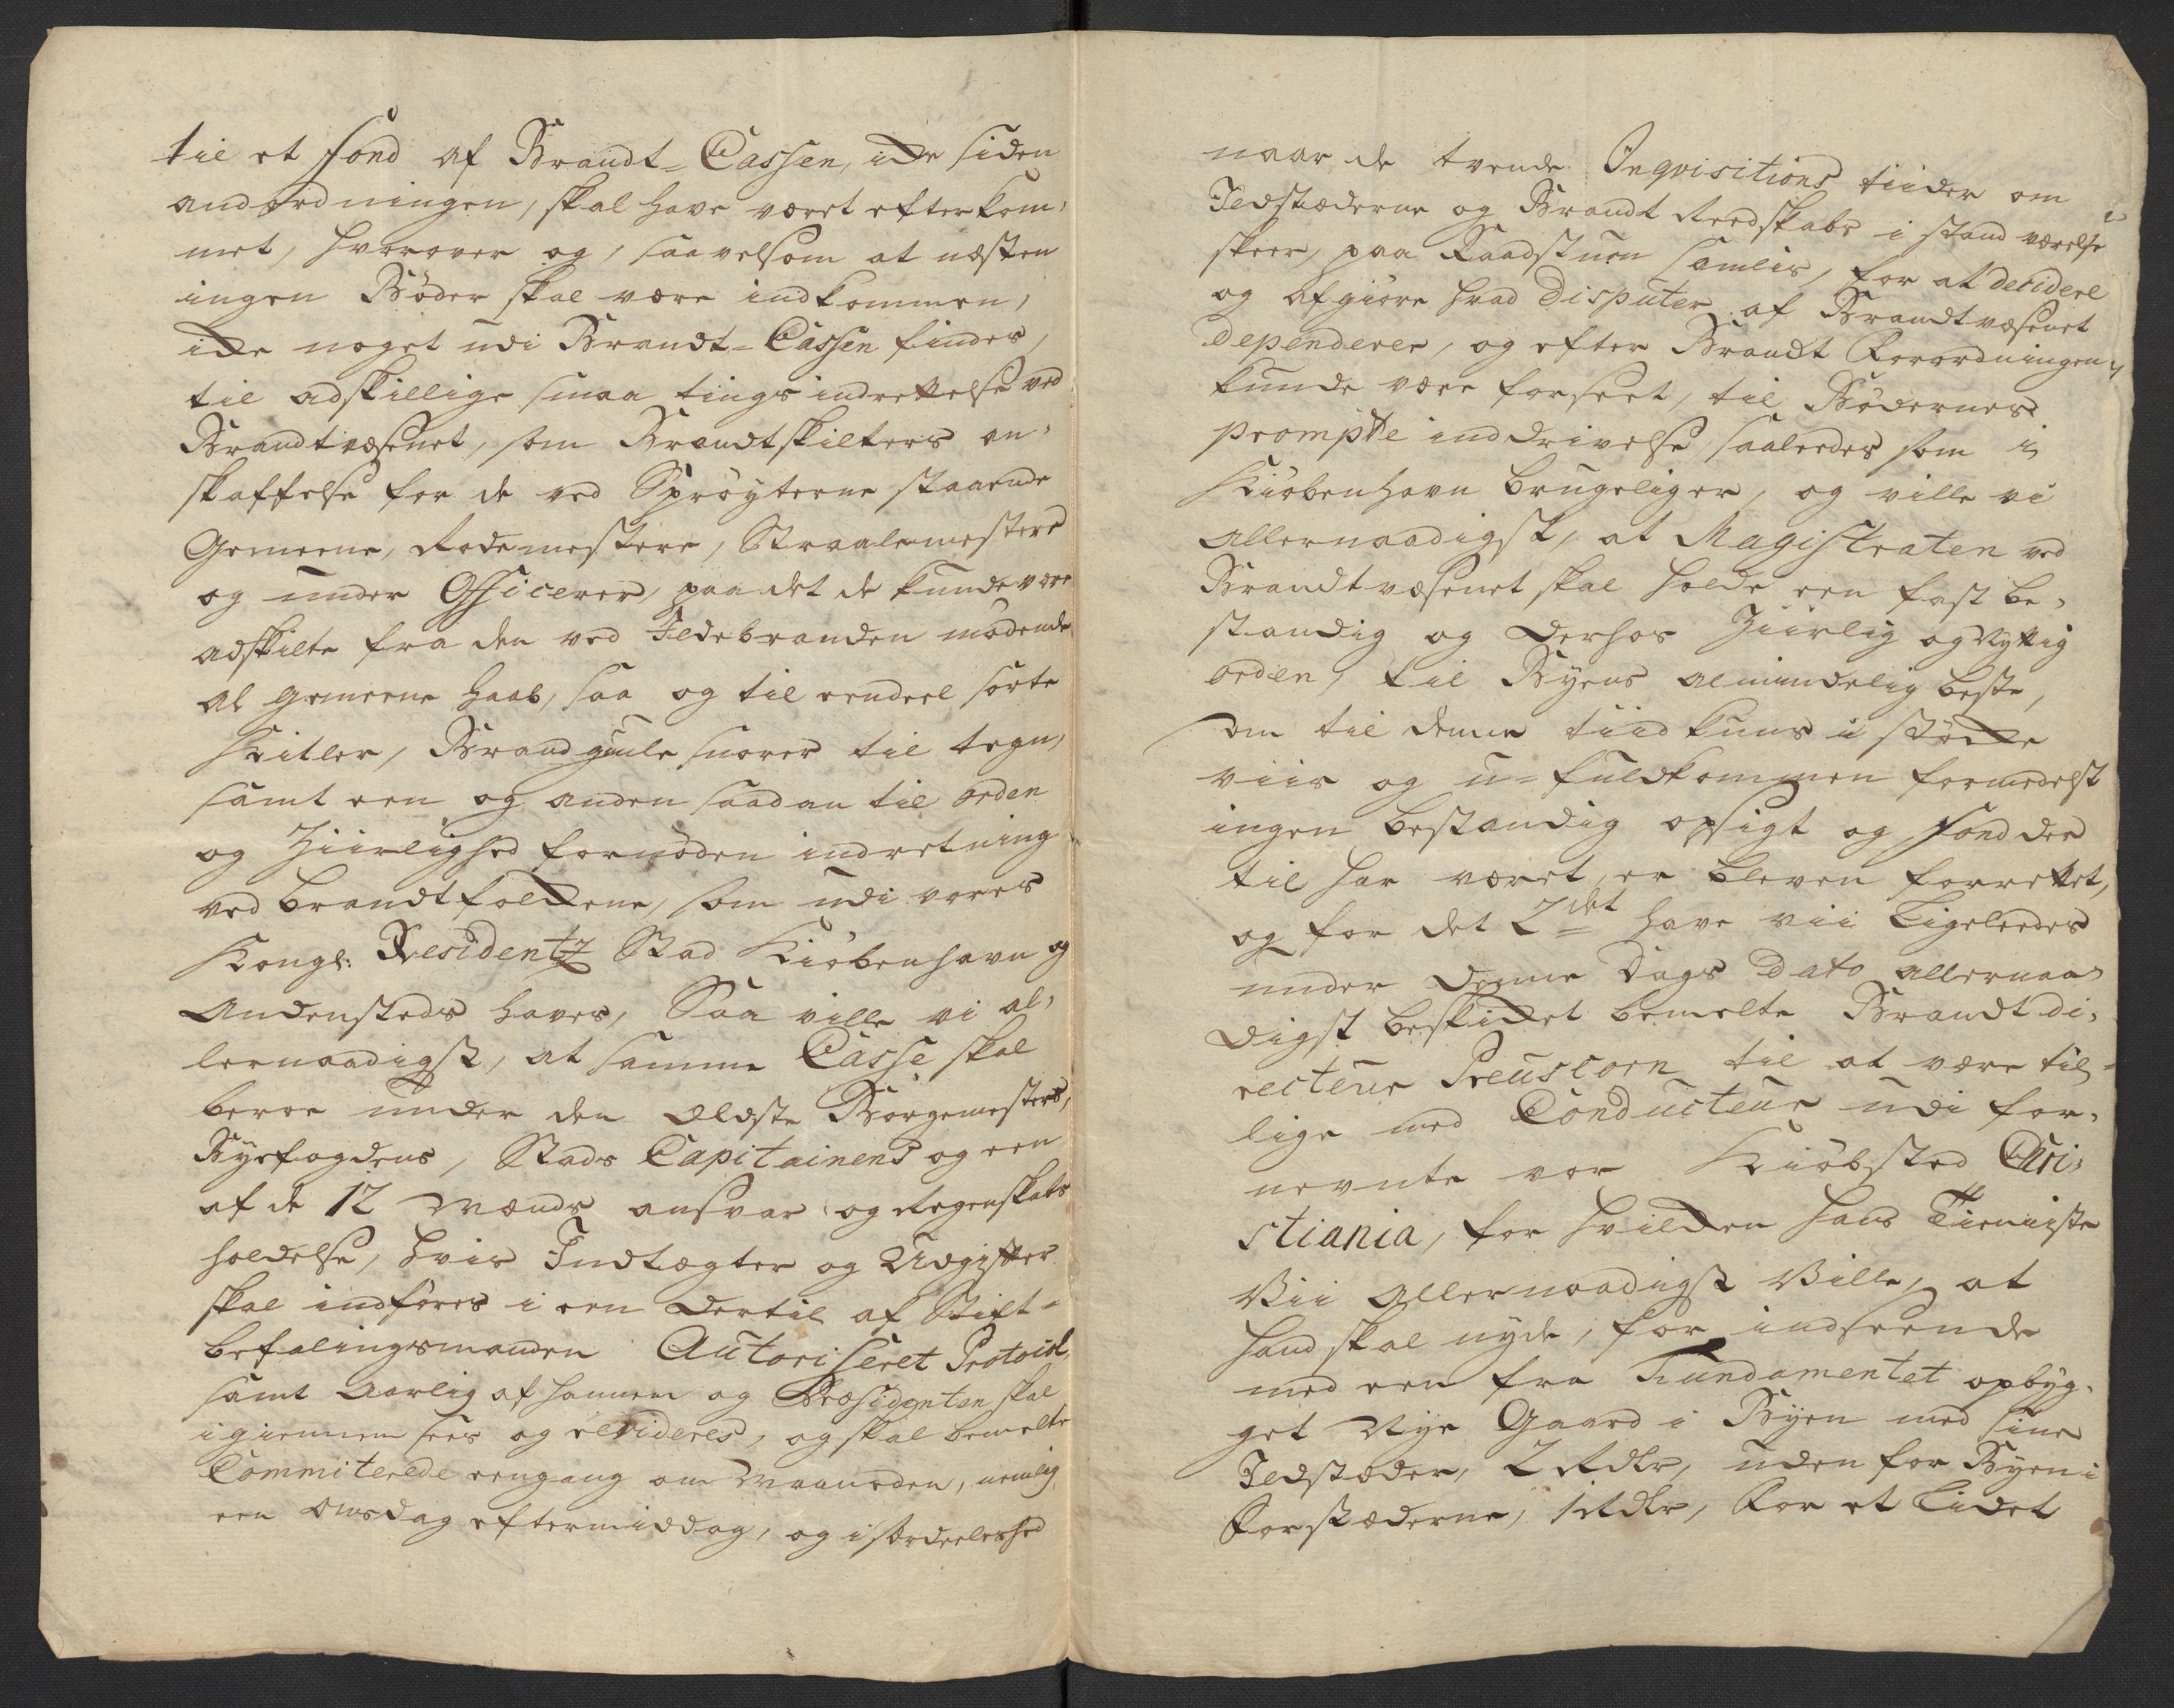 til et fond af Brandt-Cassen, icke siden
andordningen, skal have været efterkom-
met, hvorover og, saavelsom at næsten
ingen Bøder skal være indkommen,
icke noget udi Brandt-Cassen findes,
til adskillige smaa tings indrettelse ved
Brandtvæsenet, som Brandtskilters an-
skaffelse for de ved Sprøyterne staaende
Gemeene, Rodemestere, Straalemestere
og under Officerer, paa det de kunde være
adskilte fra den ved Ildebranden mødende
al gemeene Haab, saa og til eendeel sorte
Kitler, Brandgule snorer til tegn,
samt een og anden saadan til orden
og Ziirlighed fornøden indretning
ved brandtfolckene, som udi vores
Kongl: Residentz Stad Kiøbenhavn og
Andensteds haves, Saa ville vi al-
lernaadigst, at samme Casse skal
beroe under den Eldste Borgemesters,
Byefogdens, Stads Capitainens og een
af de 12 Mænds ansvar og Regenskabs
holdelse, hvis Indtægter og Udgifter
skal indføres i een dertil af Stift-
befalingsmanden Autoriseret Protocol,
samt Aarlig af hannem og Præsidenten skal
igiennemsees og revideres, og skal bemelte
Committerede eengang om Maaneden, nemlig
een Onsdag eftermiddag, og i særdeeleshed
naar de tvende Inqvisitions tiider om
Ildstæderne og Brandt Reedskabs i stand værelse
skeer, paa Raadstuen samles, for at decidere
og afgiøre hvad Disputer af Brandtvæsenet
dependerer, og efter Brandt Forordningen
kunde være forseet, til Bødernes
prompte inddrivelse saaleedes som i
Kiøbenhavn brugelig er, og ville vi
allernaadigst, at Magistraten ved
Brandtvæsenet skal holde een fast be-
standig og derhos Ziirlig og Nyttig
orden, til Byens almindelig beste,
som til denne tiid kuns i støcke
viis og u-fuldkommen formedelst
ingen bestandig opsigt og fond der
til har været, er bleven forrettet,
og for det 2det have vii Ligeleedes
under Denne Dags Dato allernaa-
digst beskicket bemelte Brandt Di-
recteur Preuscorn til at være til-
lige med Conducteur udi for-
nevnte vor Kiøbsted Chri-
stiania, for hvilcken hans Tieniiste
Vii Allernaadigst Ville, at
hand skal nyde, for indseende
med een fra Fundamentet opbyg-
get Nye Gaard i Byen med sine
Ildstæder, 2 Rdlr, uden for Byen i
Forstæderne, 1 Rdlr, For et Lidet